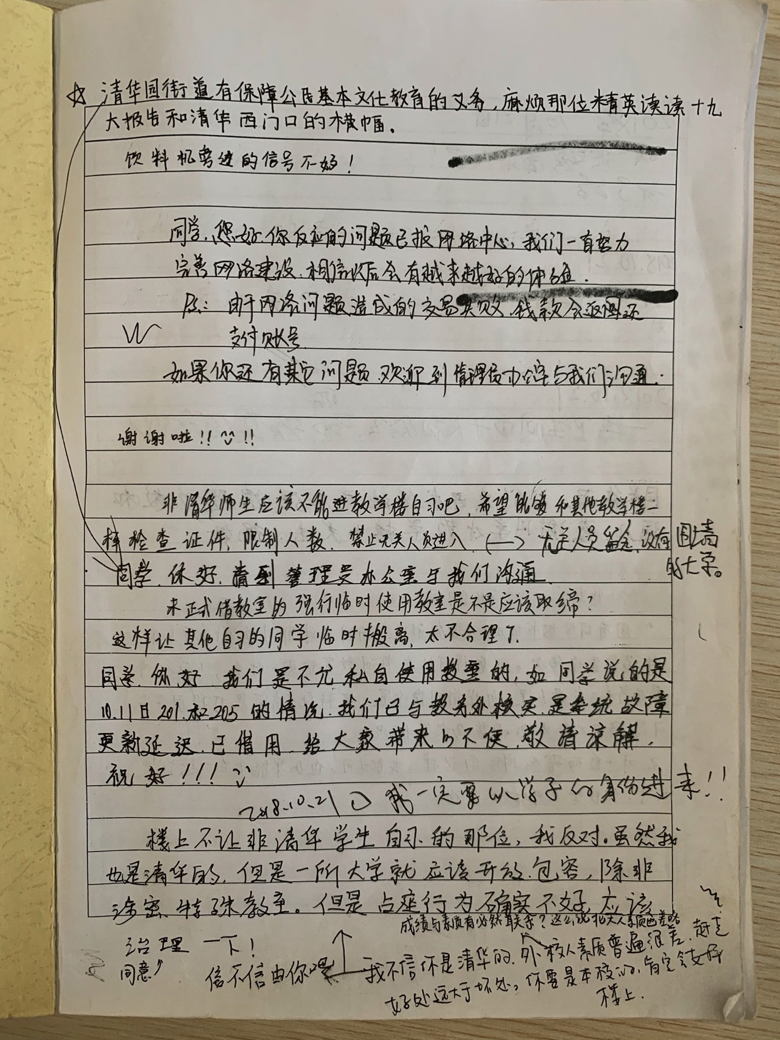 ☆ 清华园街道有保障公民基本文化教育的义务,麻烦那位精英读读十九
大报告和清华西门口的横幅。
饮料机旁边的信号不好!
同学,您好.你反应的问题已报网络中心,我们一直努力
完善网络建设.相信以后会有越来越好的体验.
由于网络问题造成的交易失败.钱款会返回还
支付账号.
如果你还有其它问题.欢迎到管理员办公室与我们沟通.
谢谢啦!!!!
非清华师生应该不能进教学楼自习吧,希望能够和其他教学楼一
样检查证件,限制人数,禁止无关人员进入.
无关人员 没有围墙
的大学。
同学,你好,请到管理员办公室与我们沟通
未正式借教室的强行临时使用教室是不是应该取缔?
这样让其他自习的同学临时搬离,太不合理了.
同学,你好 我们是不允私自使用教室的,如同学说的是
10.11日201.和205的情况.我们已与教务处核实,是系统故障
更新延迟.已借用.给大家带来的不便.敬请谅解.
祝好!!!
2018.10.21 我一定要以学子的身份进来!!
楼上不让非清华学生自习的那位,我反对。虽然我
也是清华的,但是一所大学就应该开放.包容,除非
涉密.特殊教室。但是占座行为确实不好,应该
治理一下!
成绩与素质有必然联系?
同意!
信不信由你嘿
我不信你是清华的.外校人素质普遍很差.
好处远大于坏处,你要是本校的,肯定会支持
楼上.